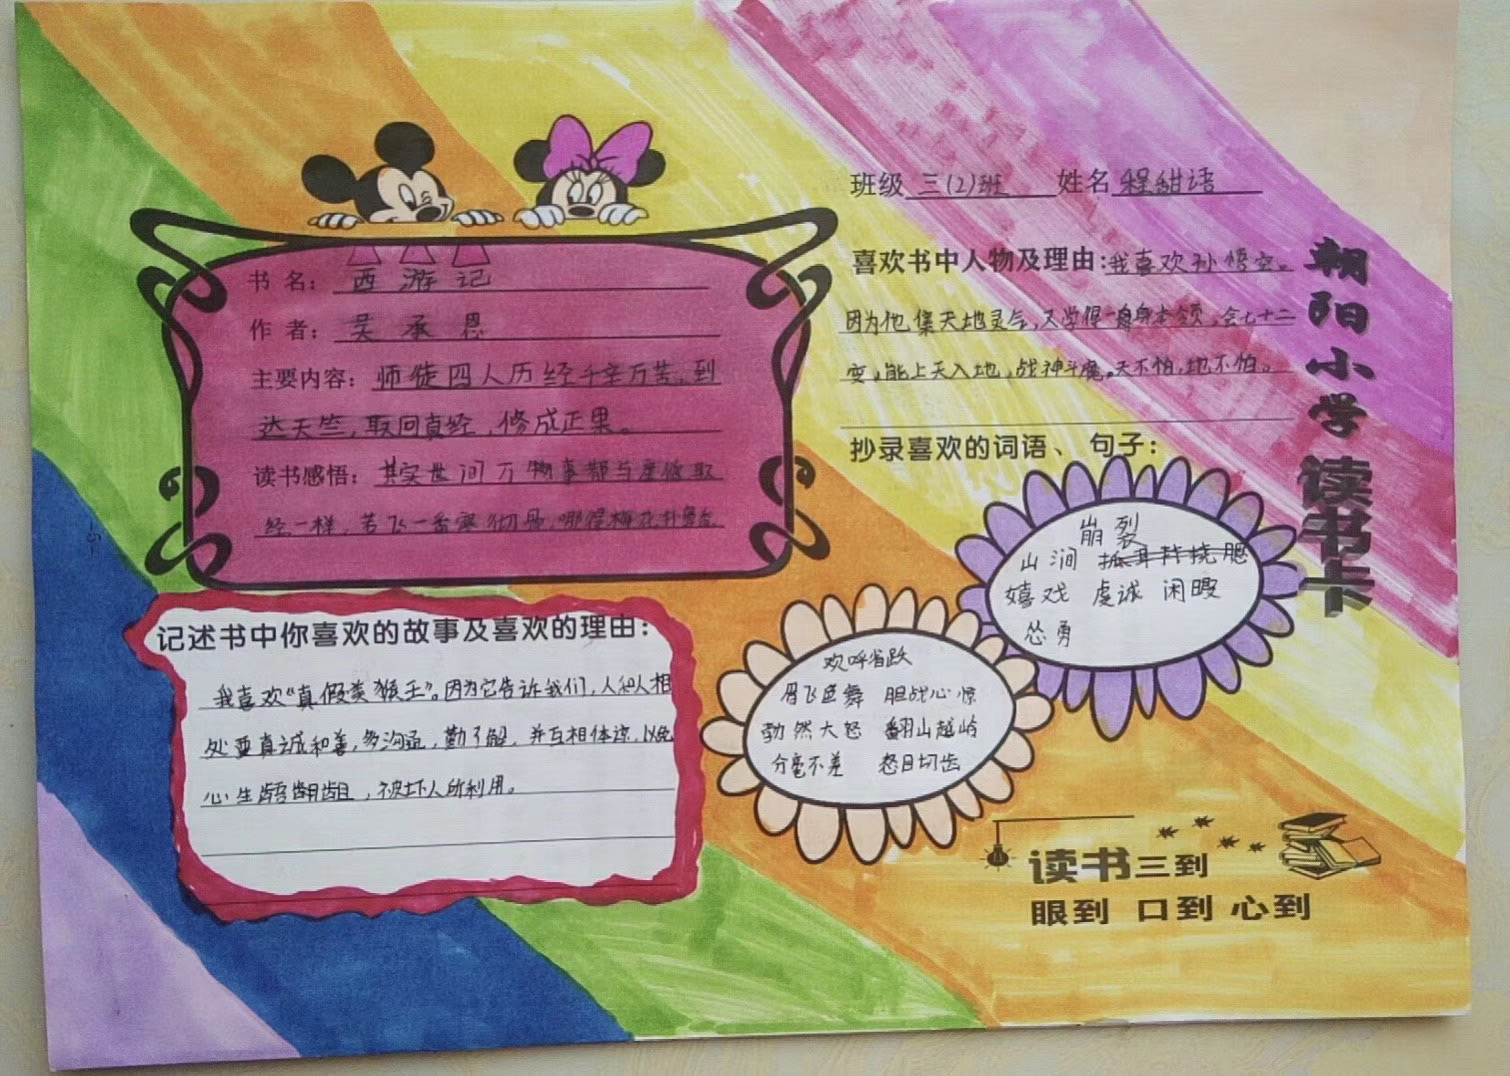 班级 三(2)班 姓名 程甜语
书名: 西游记
作者: 吴承恩
主要内容: 师徒四人历经千辛万苦,到
达天竺,取回真经,修成正果。
读书感悟: 其实世间万物事都与唐僧取
经一样,若飞一番寒彻骨,哪得梅花扑鼻香
喜欢书中人物及理由:我喜欢孙悟空。
因为他集天地灵气,又学得一身本领,会七十二
变,能上天入地,战神斗魔。天不怕,地不怕。
抄录喜欢的词语、句子:
崩裂
山涧
嬉戏 虔诚 闲暇
怂勇
欢呼省跃
眉飞色舞 胆战心惊
勃然大怒 翻山越岭
分毫不差 怒目切齿
记述书中你喜欢的故事及喜欢的理由:
我喜欢“真假美猴王”。因为它告诉我们,人和人相
处要真诚和善,多沟通,勤了解,并互相体谅,以免
心生龉龃,被坏人所利用。
朝阳小学 读书卡
读书三到
眼到 口到 心到